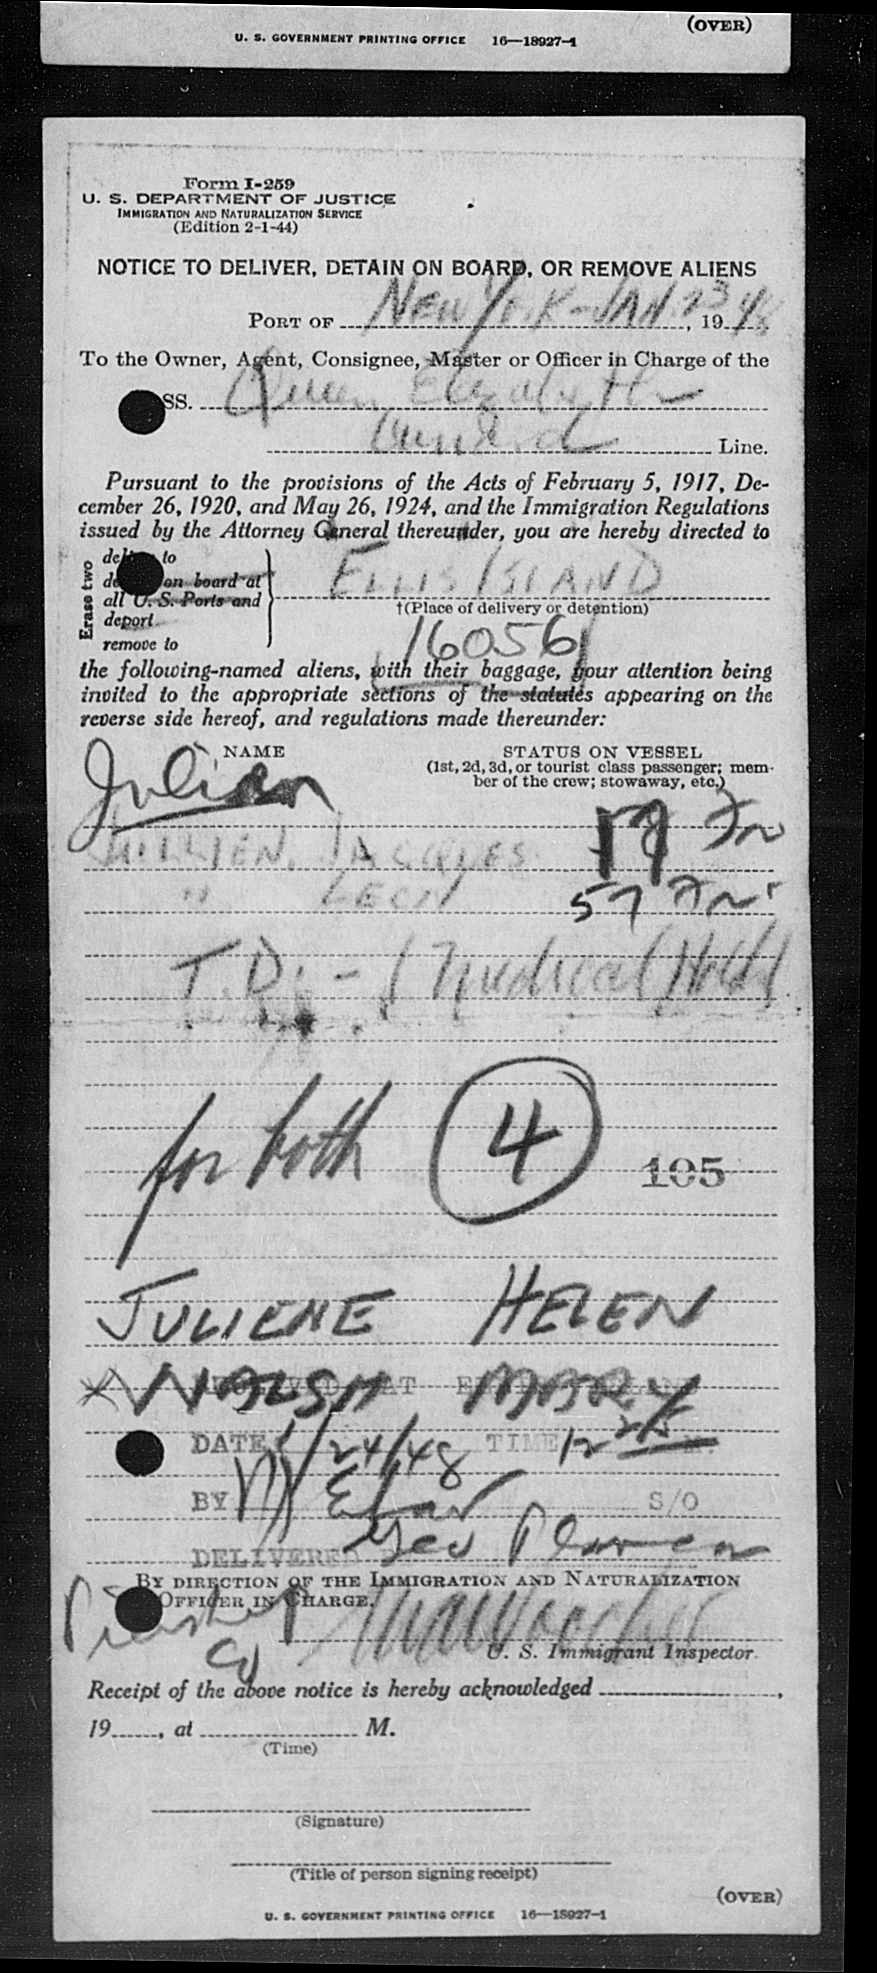 (OVER)
U. S. GOVERNMENT PRINTING OFFICE 16—18927-1
Form I-259
U. S. DEPARTMENT OF JUSTICE
IMMIGRATION AND NATURALIZATION SERVICE
(Edition 2-1-44)
NOTICE TO DELIVER, DETAIN ON BOARD, OR REMOVE ALIENS
PORT OF NEW YORK - JAN. 23, 1948
To the Owner, Agent, Consignee, Master or Officer in Charge of the
SS. Queen Elizabeth
Cunard Line.
Pursuant to the provisions of the Acts of February 5, 1917, De-
cember 26, 1920, and May 26, 1924, and the Immigration Regulations
issued by the Attorney General thereunder, you are hereby directed to
Erase two
to
on board at
all U. S. Ports and
deport
remove to
ELLIS ISLAND
†(Place of delivery or detention)
16056
the following-named aliens, with their baggage, your attention being
invited to the appropriate sections of the statutes appearing on the
reverse side hereof, and regulations made thereunder:
NAME STATUS ON VESSEL
(1st, 2d, 3d, or tourist class passenger; mem-
ber of the crew; stowaway, etc.)
Julien
JULLIEN, JACQUES 19
" LEON 57
T.D. - Medical Hold
for both 4 105
JULIENE HELEN
WALSH MARY
RECEIVED AT ELLIS ISLAND
DATE 1/24/48 TIME 12 25 M.
BY S/O
DELIVERED Geo
BY DIRECTION OF THE IMMIGRATION AND NATURALIZATION
OFFICER IN CHARGE.
U. S. Immigrant Inspector.
Receipt of the above notice is hereby acknowledged ,
19 , at M.
(Time)
(Signature)
(Title of person signing receipt)
(OVER)
U. S. GOVERNMENT PRINTING OFFICE 16—18927-1